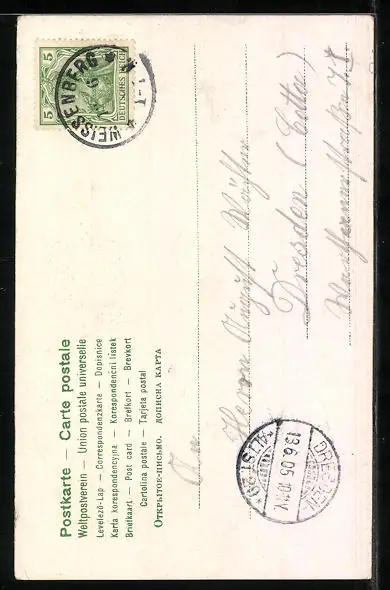 Postkarte — Carte postale
Weltpostverein — Union postale universelle
Levelező-Lap — Correspondenzkarte — Dopisnice
Karta korespondencyjna — Korespondenční lístek
Briefkaart — Post card — Brefkort — Brevkort
Cartolina postale — Tarjeta postal
Открытое-письмо. Дописна карта
5 DEUTSCHES REICH 5
WEISSENBERG
An
Herrn August
Dresden (Cotta)
DRESDEN ALTST.
13.6.05